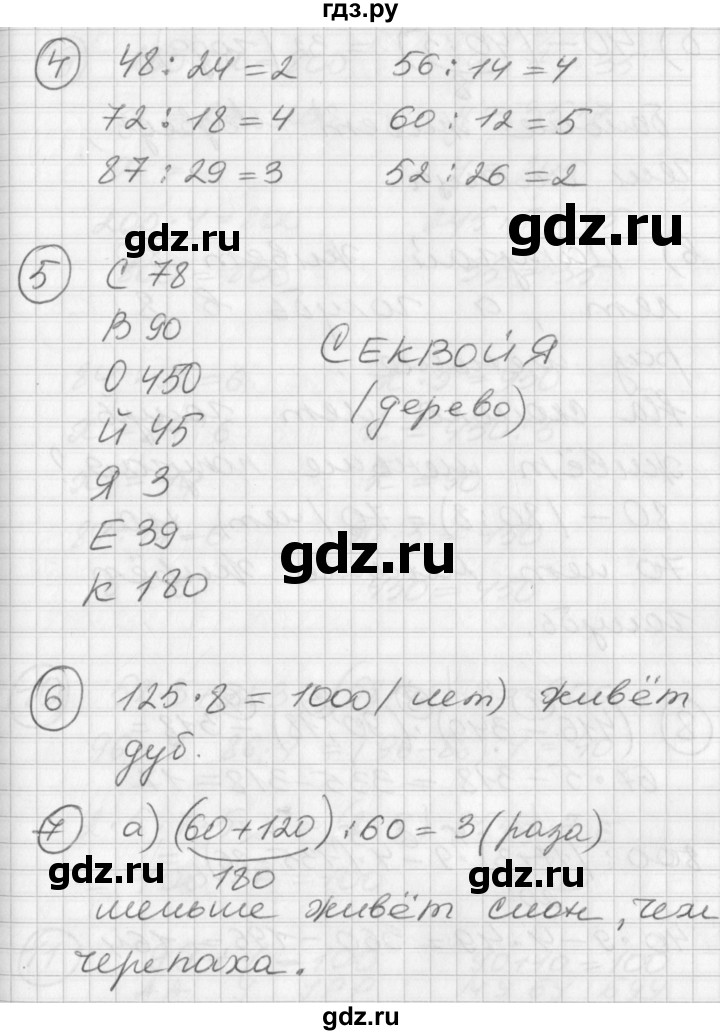 гдз.ру
4 48 : 24 = 2 56 : 14 = 4
72 : 18 = 4 60 : 12 = 5
87 : 29 = 3 52 : 26 = 2
gdz.ru
gdz.ru
5 С 78
В 90
О 450
Й 45
Я 3
Е 39
К 180
СЕКВОЙЯ
(дерево)
gdz.ru
6 125 · 8 = 1000 (лет) живёт
дуб.
7 а) (60 + 120) : 60 = 3 (раза)
180
gdz.ru
gdz.ru
меньше живёт слон, чем
черепаха.
гдз.ру